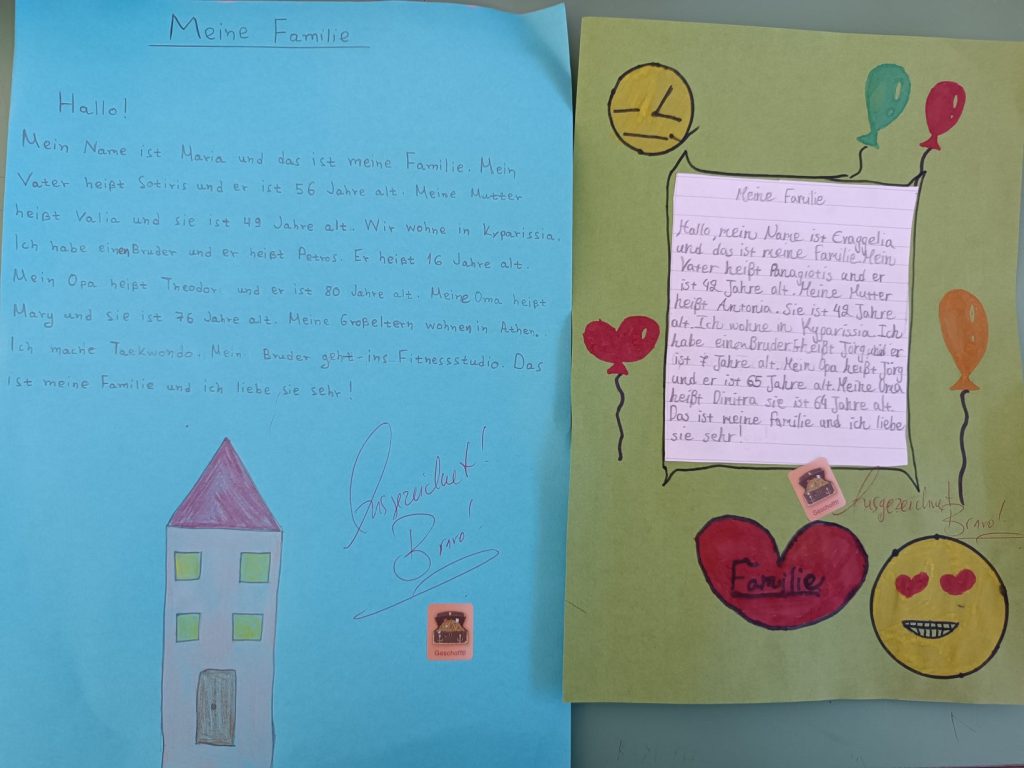 Meine Familie
Hallo!
Mein Name ist Maria und das ist meine Familie. Mein
Vater heißt Sotiris und er ist 56 Jahre alt. Meine Mutter
heißt Valia und sie ist 49 Jahre alt. Wir wohne in Kyparissia.
Ich habe einen Bruder und er heißt Petros. Er heißt 16 Jahre alt.
Mein Opa heißt Theodor und er ist 80 Jahre alt. Meine Oma heißt
Mary und sie ist 76 Jahre alt. Meine Großeltern wohnen in Athen.
Ich mache Taekwondo. Mein Bruder geht ins Fitnessstudio. Das
ist meine Familie und ich liebe sie sehr!
Ausgezeichnet!
Bravo!
Geschafft!
Meine Familie
Hallo, mein Name ist Evaggelia
und das ist meine Familie. Mein
Vater heißt Panagiotis und er
ist 42 Jahre alt. Meine Mutter
heißt Antonia. Sie ist 42 Jahre
alt. Ich wohne in Kyparissia. Ich
habe einen Bruder. Er heißt Jörg und er
ist 7 Jahre alt. Mein Opa heißt Jörg
und er ist 65 Jahre alt. Meine Oma
heißt Dimitra sie ist 64 Jahre alt.
Das ist meine Familie und ich liebe
sie sehr!
Geschafft!
Ausgezeichnet
Bravo!
Familie